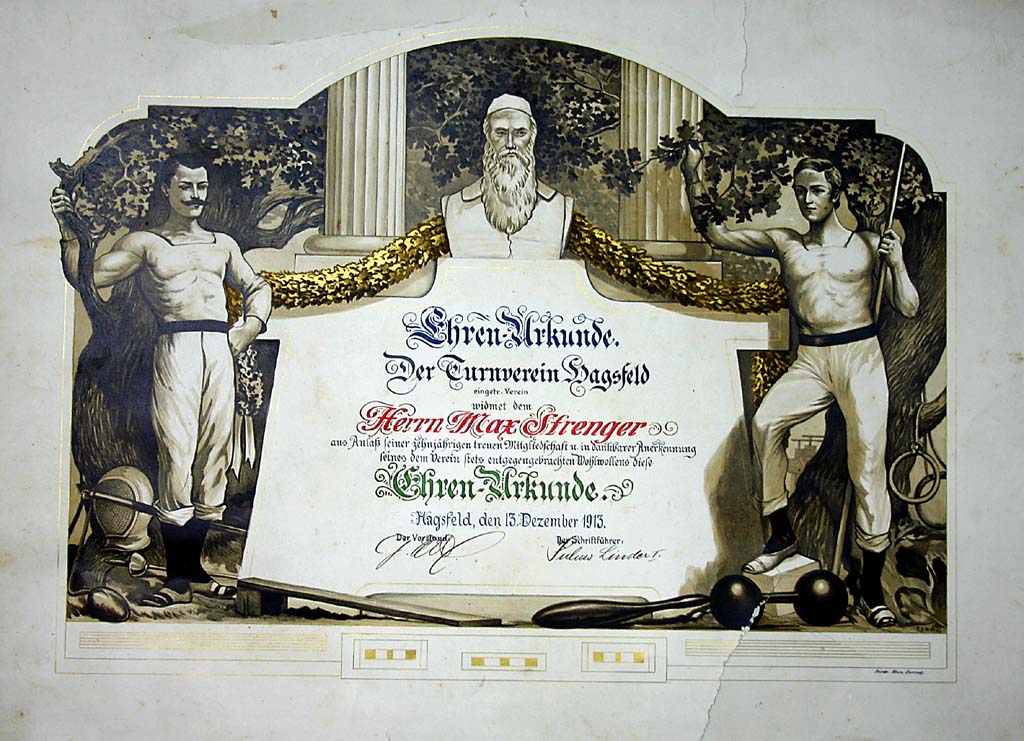 Ehren-Urkunde.
Der Turnverein Hagsfeld
eingetr. Verein
widmet dem
Herrn Max Strenger
aus Anlaß seiner zehnjährigen treuen Mitgliedschaft u. in dankbarer Anerkennung
seines dem Verein stets entgegengebrachten Wohlwollens diese
Ehren-Urkunde.
Hagsfeld, den 13. Dezember 1913.
Der Vorstand: Der Schriftführer:
Julius Linder I.